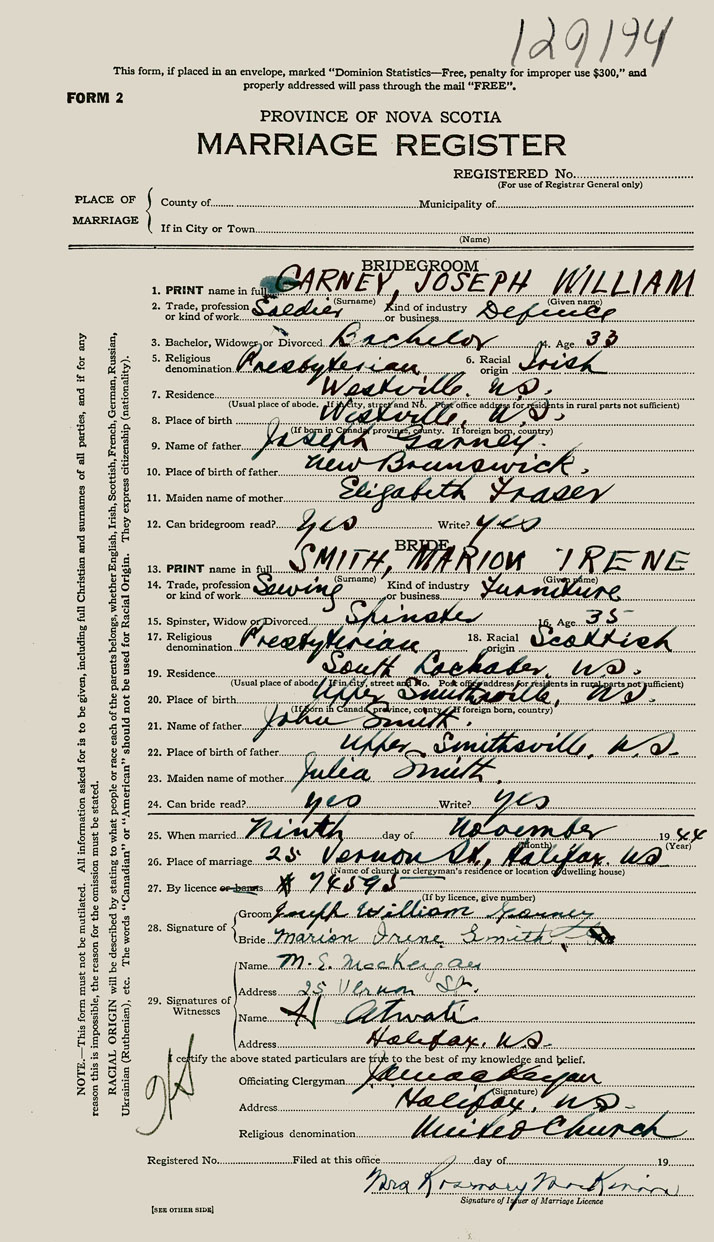 129194
This form, if placed in an envelope, marked "Dominion Statistics—Free, penalty for improper use $300," and
properly addressed will pass through the mail "FREE".
FORM 2
PROVINCE OF NOVA SCOTIA
MARRIAGE REGISTER
REGISTERED No.
(For use of Registrar General only)
PLACE OF MARRIAGE
County of Municipality of
If in City or Town
(Name)
BRIDEGROOM
1. PRINT name in full GARNEY, JOSEPH WILLIAM
(Surname) (Given name)
2. Trade, profession or kind of work Soldier Kind of industry or business Defence
3. Bachelor, Widower or Divorced Bachelor 4. Age 33
5. Religious denomination Presbyterian 6. Racial origin Irish
7. Residence Westville, N.S.
(Usual place of abode. If in city, street and No. Post office address for residents in rural parts not sufficient)
8. Place of birth Westville, N.S.
(If born in Canada, province, county. If foreign born, country)
9. Name of father Joseph Garney.
10. Place of birth of father New Brunswick.
11. Maiden name of mother Elizabeth Fraser
12. Can bridegroom read? yes Write? yes
BRIDE
13. PRINT name in full SMITH, MARION IRENE
(Surname) (Given name)
14. Trade, profession or kind of work Sewing Kind of industry or business Furniture
15. Spinster, Widow or Divorced Spinster 16. Age 35
17. Religious denomination Presbyterian 18. Racial origin Scottish
19. Residence South Lochaber, N.S.
(Usual place of abode. If in city, street and No. Post office address for residents in rural parts not sufficient)
20. Place of birth Upper Smithsville, N.S.
(If born in Canada, province, county. If foreign born, country)
21. Name of father John Smith.
22. Place of birth of father Upper Smithsville, N.S.
23. Maiden name of mother Julia Smith.
24. Can bride read? yes Write? yes
25. When married Ninth day of November 19 44
(Month) (Year)
26. Place of marriage 25 Vernon St., Halifax. N.S.
(Name of church or clergyman's residence or location of dwelling house)
27. By licence or banns # 74595
(If by licence, give number)
28. Signature of
Groom Joseph William Garney
Bride Marion Irene Smith
29. Signatures of Witnesses
Name M. E. MacKeigan
Address 25 Vernon St.
Name Atwater
Address Halifax, N.S.
I certify the above stated particulars are true to the best of my knowledge and belief.
Officiating Clergyman
(Signature)
Address Halifax, N.S.
Religious denomination United Church
Registered No. Filed at this office day of 19
Mrs Rosmary MacKinnon
Signature of Issuer of Marriage Licence
[SEE OTHER SIDE]
NOTE.—This form must not be mutilated. All information asked for is to be given, including full Christian and surnames of all parties, and if for any
reason this is impossible, the reason for the omission must be stated.
RACIAL ORIGIN will be described by stating to what people or race each of the parents belongs, whether English, Irish, Scottish, French, German, Russian,
Ukrainian (Ruthenian), etc. The words "Canadian" or "American" should not be used for Racial Origin. They express citizenship (nationality).